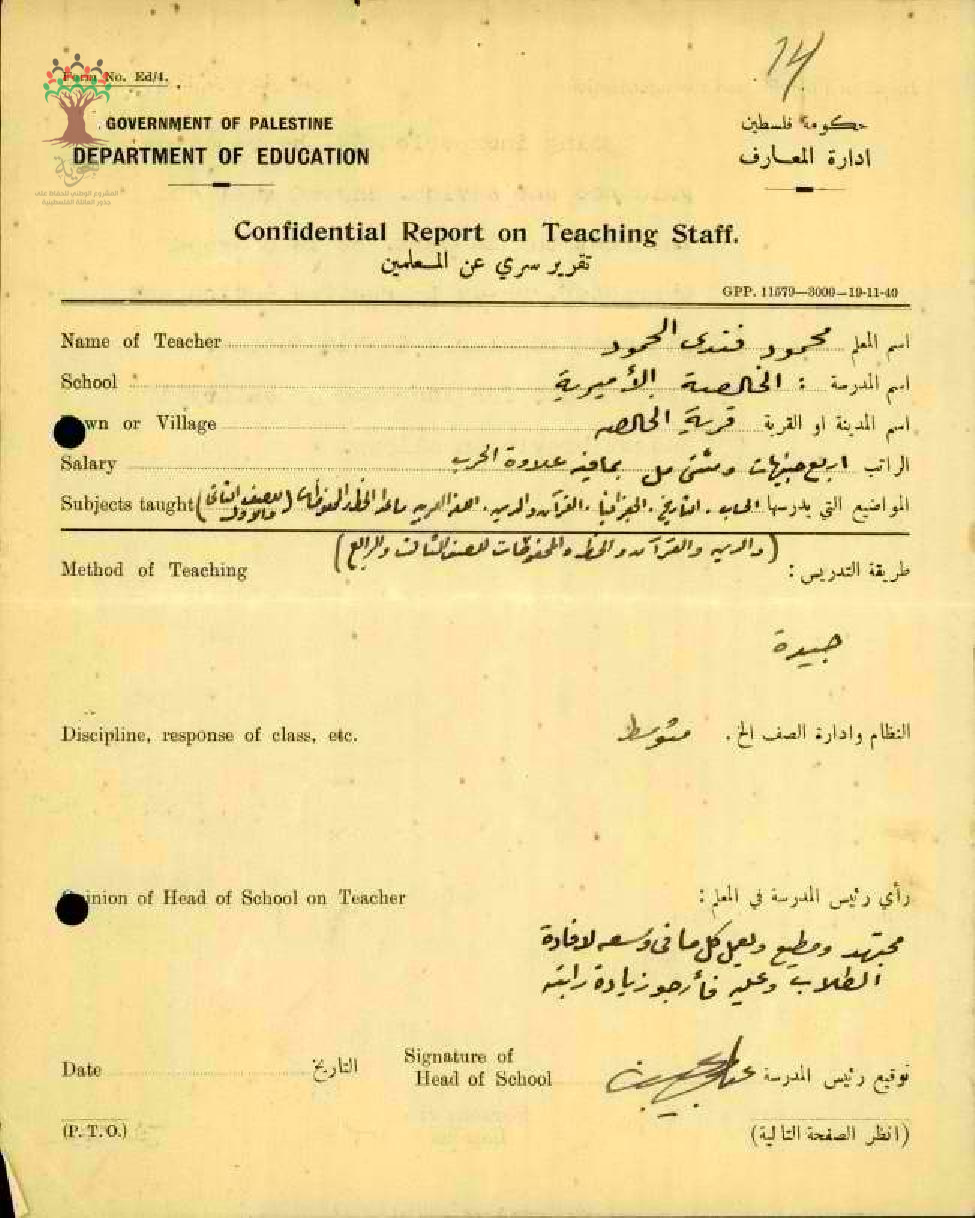 14
Form No. Ed/4.
هوية
المشروع الوطني للحفاظ على
جذور العائلة الفلسطينية
GOVERNMENT OF PALESTINE
حكومة فلسطين
DEPARTMENT OF EDUCATION
ادارة المعارف
Confidential Report on Teaching Staff.
تقرير سري عن المعلمين
GPP. 11579—3000—19-11-40
Name of Teacher اسم المعلم محمود فندي المحمود
School اسم المدرسة : الخالصة الأميرية
Town or Village اسم المدينة او القرية قرية الخالصه
Salary الراتب اربع جنيهات ومئتي مل بما فيه علاوة الحرب
Subjects taught المواضيع التي يدرسها الحساب . التاريخ . الجغرافيا . القرآن والدين . اللغة العربيه (للصف الثاني والاول)
(والدين والقرآن والخط والمحفوظات للصف الثالث والرابع)
Method of Teaching طريقة التدريس :
جيدة
Discipline, response of class, etc. النظام وادارة الصف الخ . متوسط
Opinion of Head of School on Teacher رأي رئيس المدرسة في المعلم :
مجتهد ومطيع ويعمل كل ما في وسعه لافادة
الطلاب وعليه فأرجو زيادة راتبه
Date التاريخ
Signature of Head of School توقيع رئيس المدرسة
(P. T. O.) (انظر الصفحة التالية)